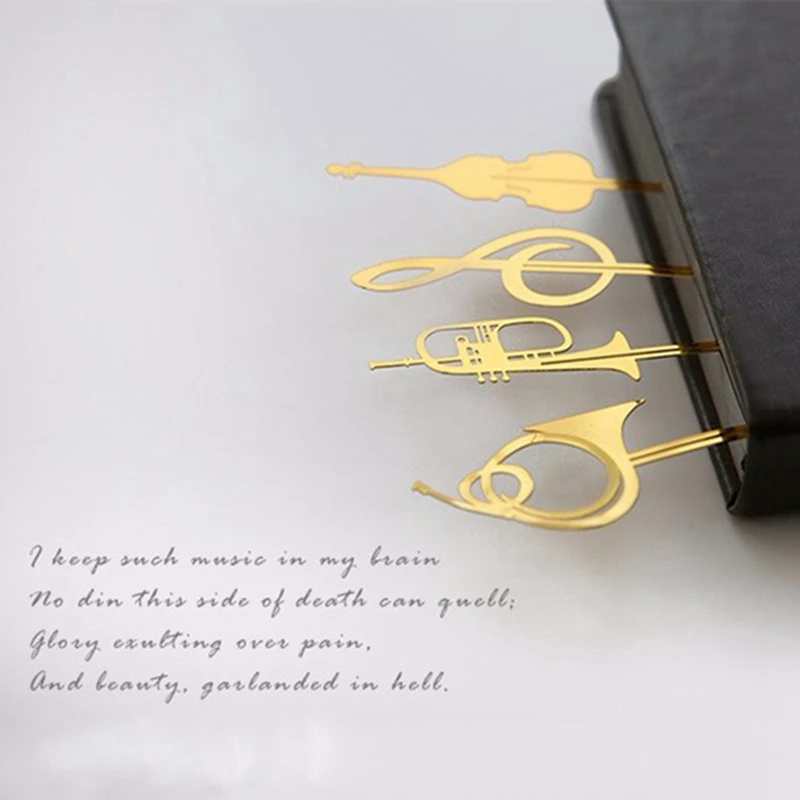 I keep such music in my brain
No din this side of death can quell;
Glory exulting over pain,
And beauty, garlanded in hell.